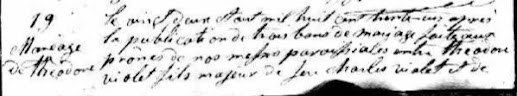 19
Mariage
de Théodore
le vingt deux Aout mil huit cent trente cinq après
la publication de trois bans de mariage faite aux
prônes de nos messes paroissiales entre Théodore
violet fils majeur de feu Charles violet et de